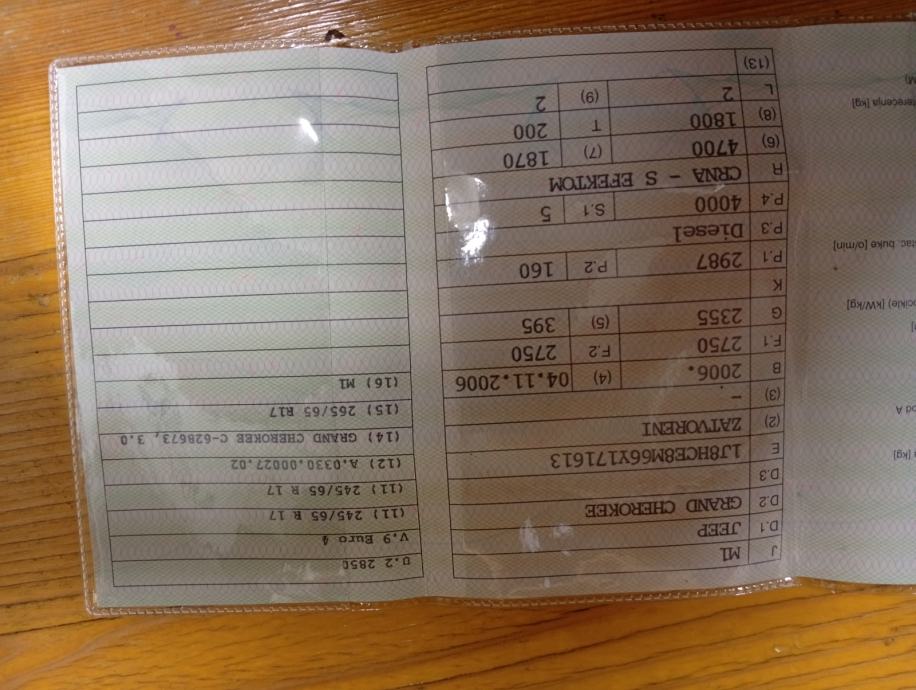 [kg]
od A
ocikle) [kW/kg]
tac. buke [o/min]
terećenja [kg]
J M1
D.1 JEEP
D.2 GRAND CHEROKEE
D.3
E 1J8HCE8M66Y171613
(2) ZATVORENI
(3) -
B 2006. (4) 04.11.2006
F.1 2750 F.2 2750
G 2355 (5) 395
K
P.1 2987 P.2 160
P.3 Diesel
P.4 4000 S.1 5
R CRNA - S EFEKTOM
(6) 4700 (7) 1870
(8) 1800 T 200
L 2 (9) 2
(13)
U.2 2850
V.9 Euro 4
(11) 245/65 R 17
(11) 245/65 R 17
(12) A.0330.00027.02
(14) GRAND CHEROKEE C-628673, 3.0
(15) 265/65 R17
(16) M1